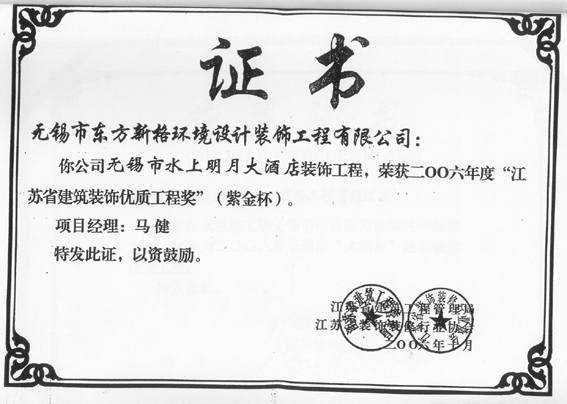 证书
无锡市东方新格环境设计装饰工程有限公司：
你公司无锡市水上明月大酒店装饰工程，荣获二OO六年度“江
苏省建筑装饰优质工程奖”（紫金杯）。
项目经理：马健
特发此证，以资鼓励。
江苏省建筑工程管理局
江苏省装饰装修行业协会
二OO六年十月